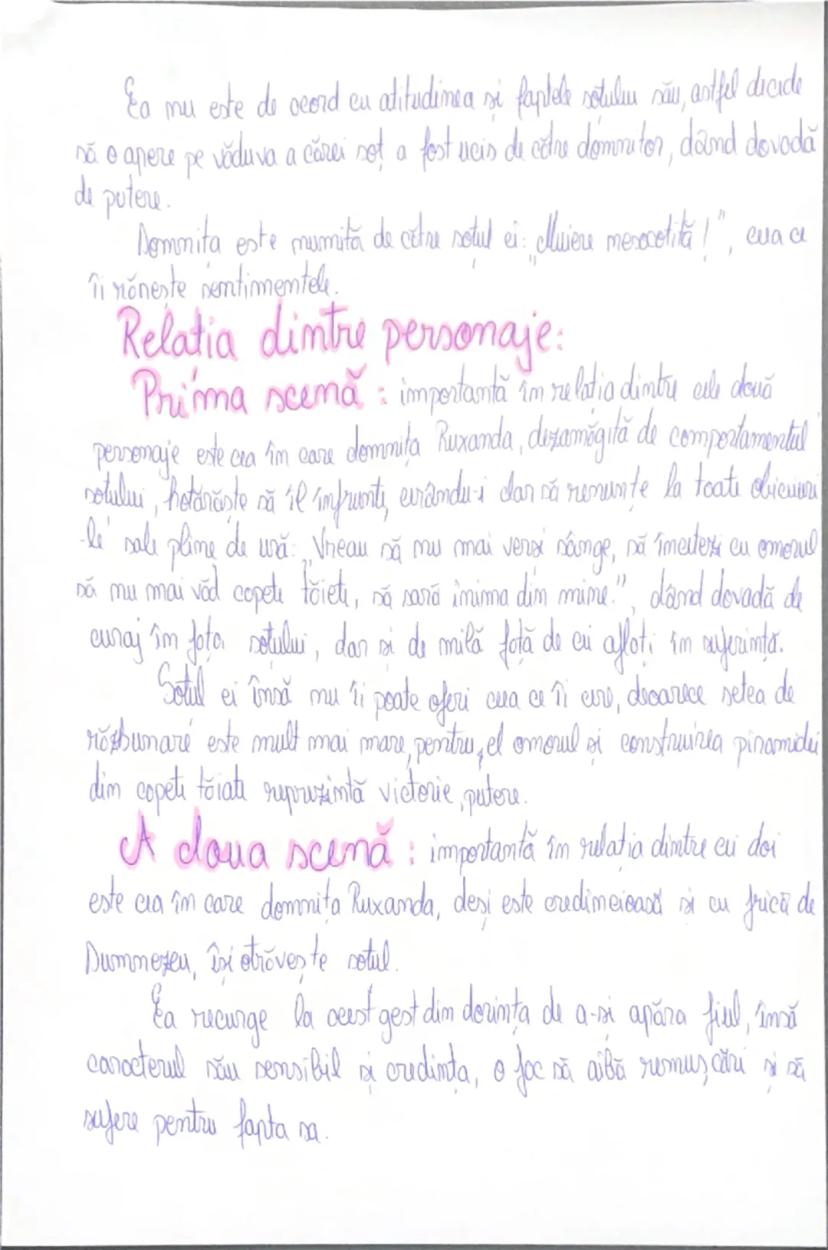 Ea nu este de acord cu atitudinea și faptele soțului său, astfel decide
să o apere pe văduva a cărei soț a fost ucis de către domnitor, dând dovadă
de putere.
Domnița este numită de către soțul ei: „Muiere nesocotită!”, ceea ce
îi rănește sentimentele.
Relația dintre personaje:
Prima scenă: importantă în relația dintre cele două
personaje este cea în care domnița Ruxanda, dezamăgită de comportamentul
soțului, hotărăște să îl înfrunte, cerându-i dar să renunțe la toate obiceiuri
-le sale pline de ură: „Vreau să nu mai verși sânge, să încetezi cu omorul
să nu mai văd capete tăiete, să sară inima din mine.”, dând dovadă de
curaj în fața soțului, dar și de milă față de cei aflați în suferință.
Soțul ei însă nu îi poate oferi ceea ce îi cere, deoarece setea de
răzbunare este mult mai mare, pentru el omorul și construirea piramidei
din capete tăiate reprezintă victorie, putere.
A doua scenă: importantă în relația dintre cei doi
este cea în care domnița Ruxanda, deși este credincioasă și cu frică de
Dumnezeu, își otrăvește soțul.
Ea recurge la acest gest din dorința de a-și apăra fiul, însă
caracterul său sensibil și credința, o fac să aibă remușcări și să
sufere pentru fapta sa.